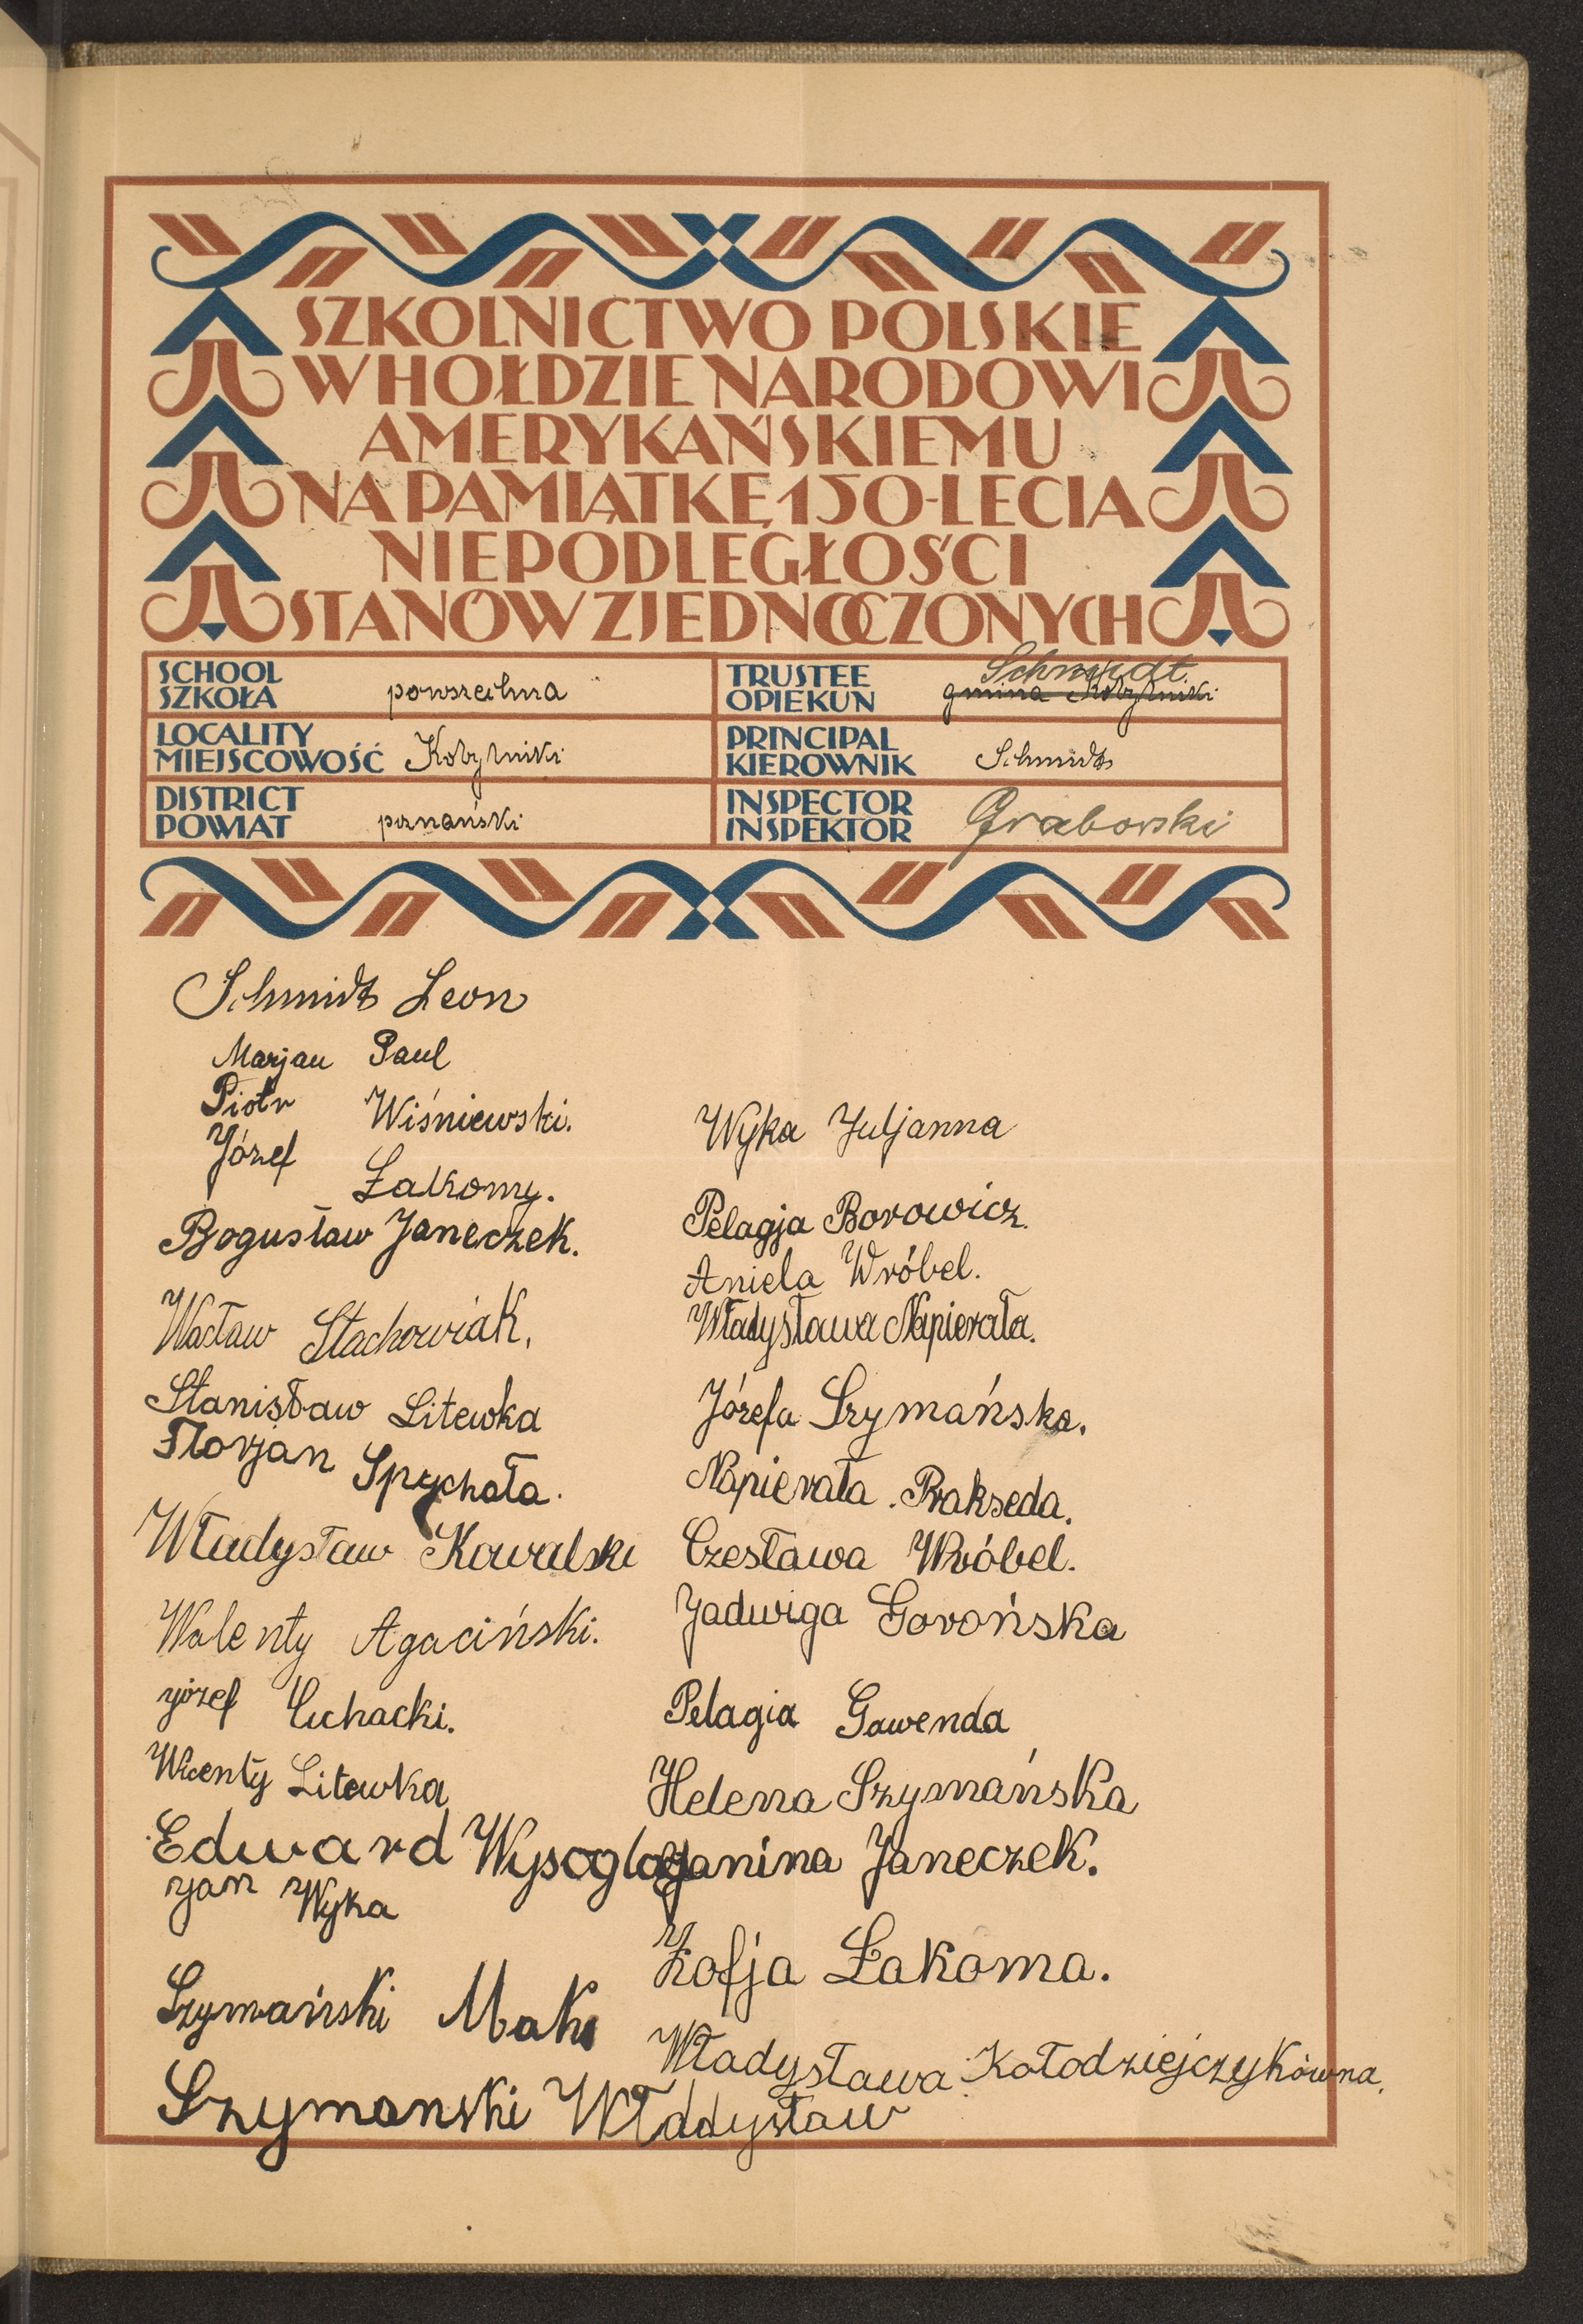 SZKOLNICTWO POLSKIE
W HOŁDZIE NARODOWI
AMERYKAŃSKIEMU
NA PAMIĄTKĘ 150-LECIA
NIEPODLEGŁOŚCI
STANÓW ZJEDNOCZONYCH
SCHOOL
SZKOŁA powszechna
TRUSTEE Schmidt
OPIEKUN gmina Kobylniki
LOCALITY
MIEJSCOWOŚĆ Kobylniki
PRINCIPAL
KIEROWNIK Schmidt
DISTRICT
POWIAT poznański
INSPECTOR
INSPEKTOR Graborski
Schmidt Leon
Marjan Paul
Piotr Wiśniewski.
Józef Łalkomy.
Bogusław Janeczek.
Wacław Stachowiak.
Stanisław Litewka
Florjan Spychała.
Władysław Kowalski
Walenty Agaciński.
Józef Cichacki.
Wicenty Litewka
Edward Wysogląd
Jan Wyka
Szymański Maks
Szymonski Władysław
Wyka Juljanna
Pelagja Borowicz.
Aniela Wróbel.
Władysława Napierała.
Józefa Szymańska.
Napierała Prakseda.
Czesława Wróbel.
Jadwiga Gorońska
Pelagia Gawenda
Helena Szymańska
Janina Janeczek.
Zofja Łakoma.
Władysława Kołodziejczykówna.